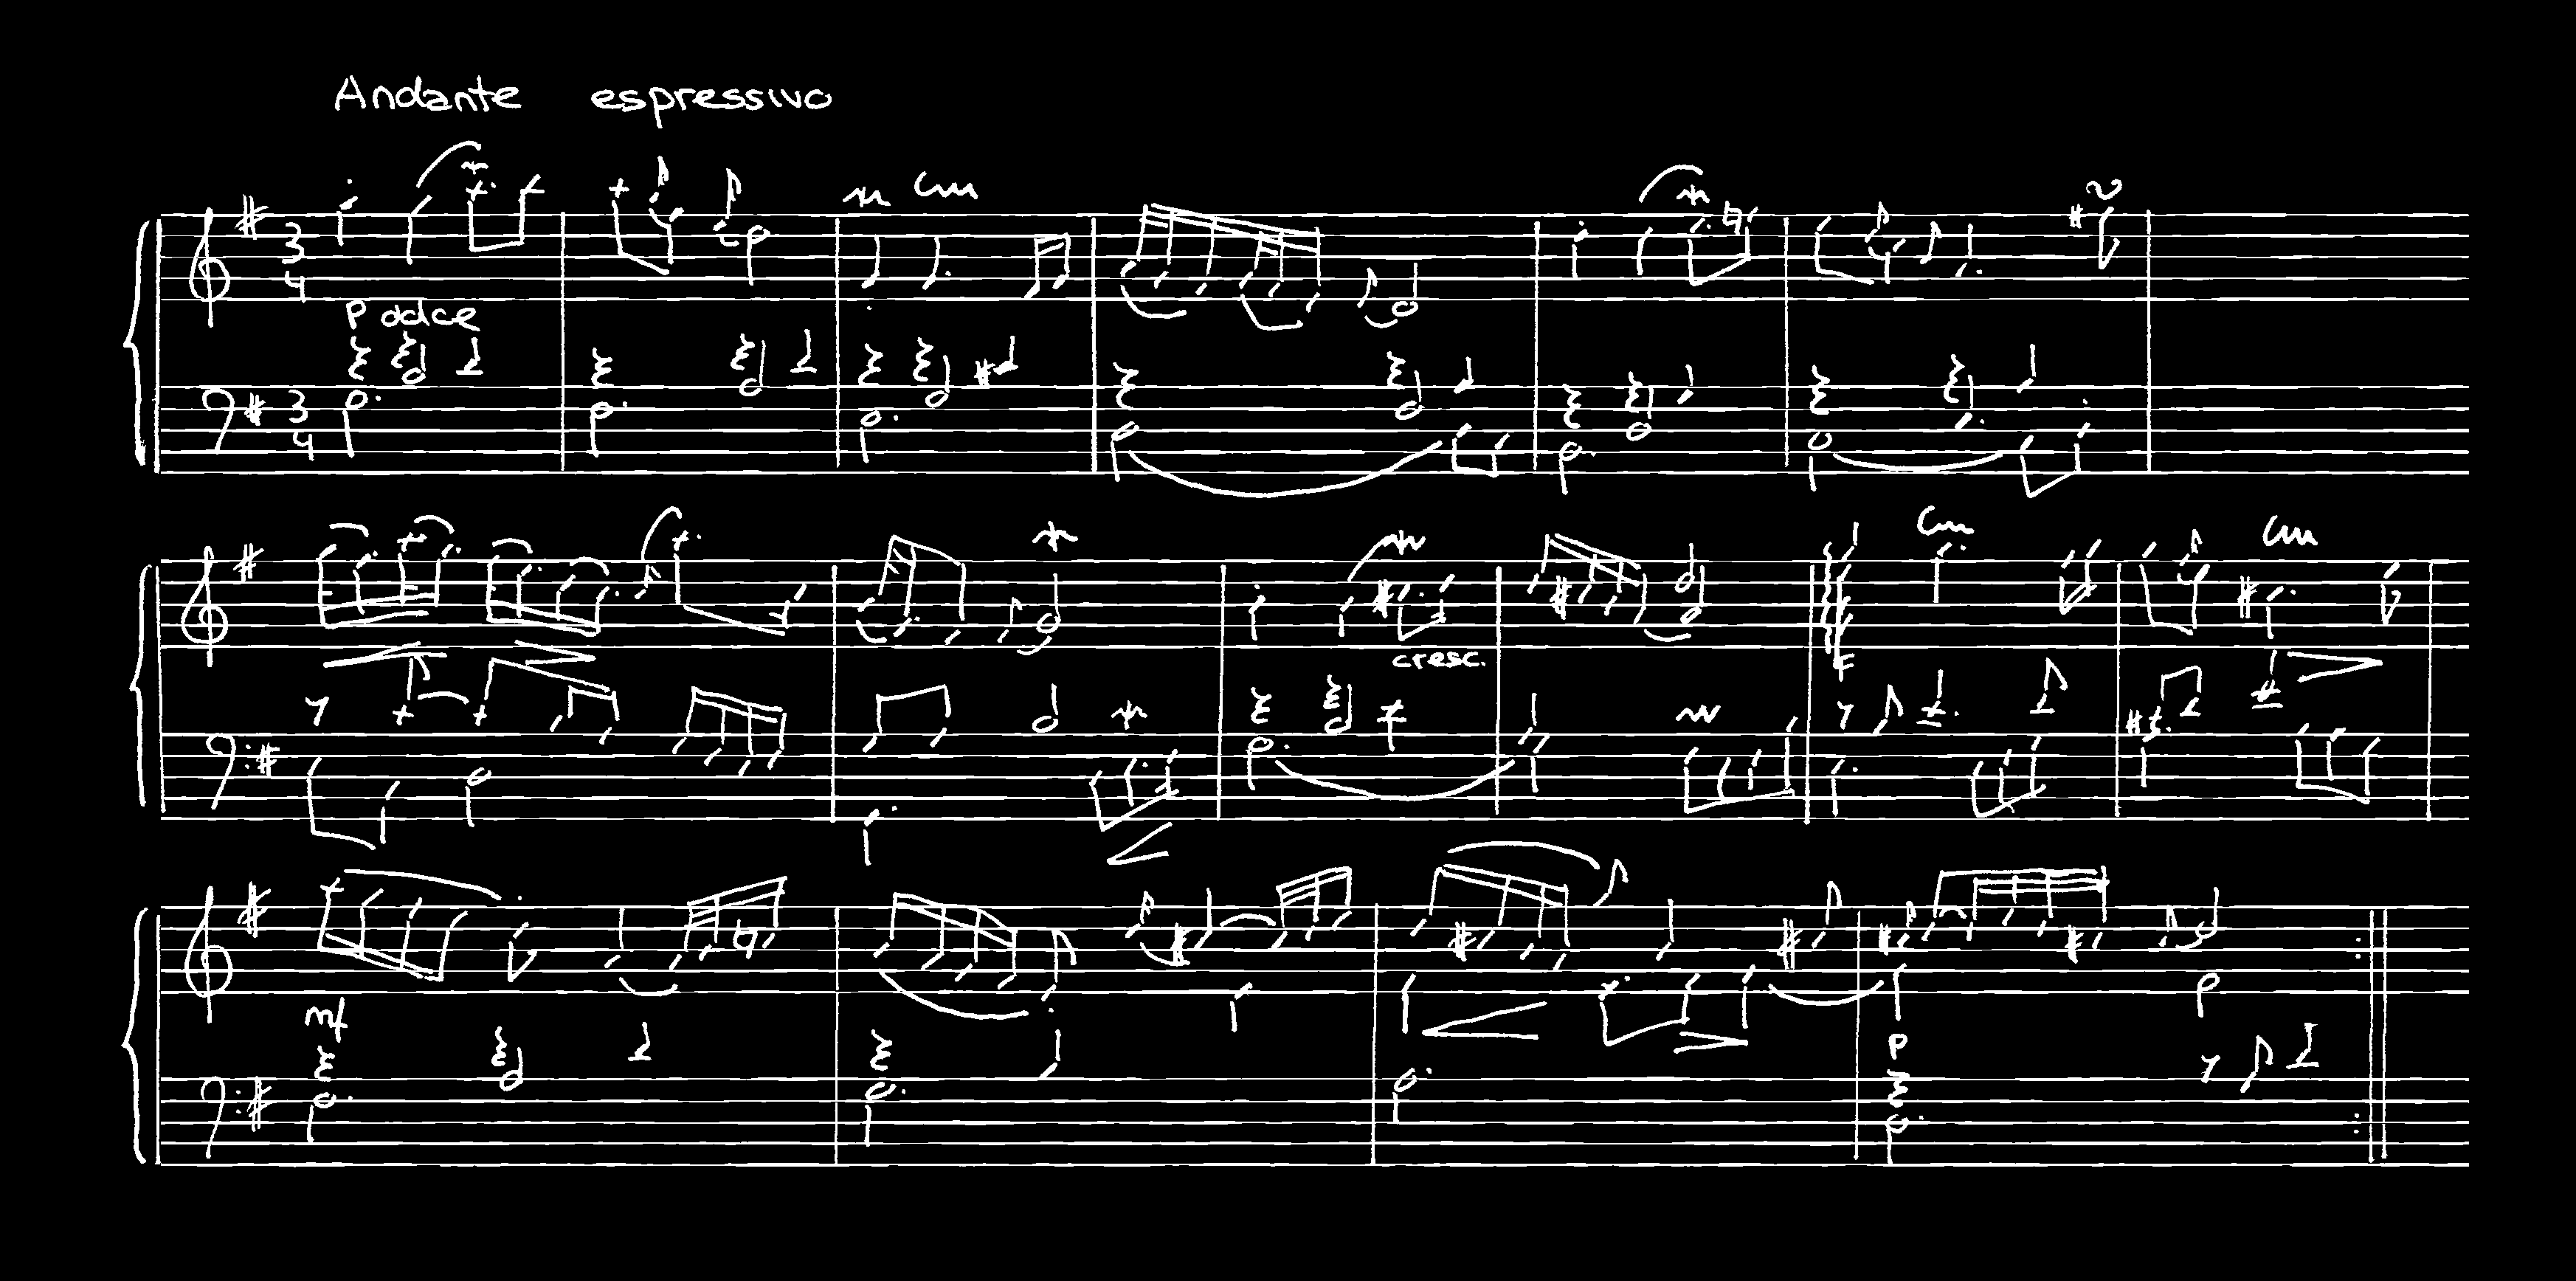 Andante espressivo
3
4
P dolce
3
4
cresc.
F
mf
P